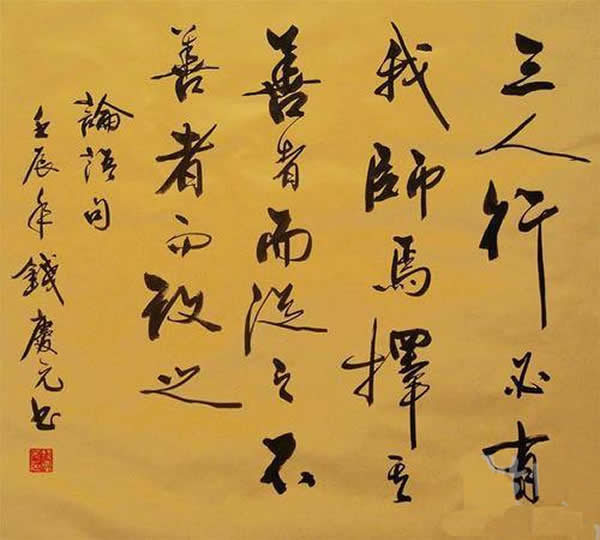 三人行必有
我師焉擇其
善者而從之不
善者而改之
論語句
壬辰年錢慶元書